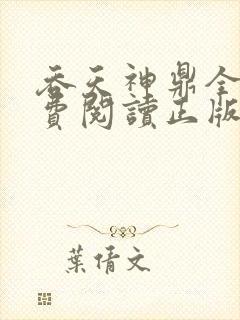 吞天神鼎全
費閱讀正版
葉倩文